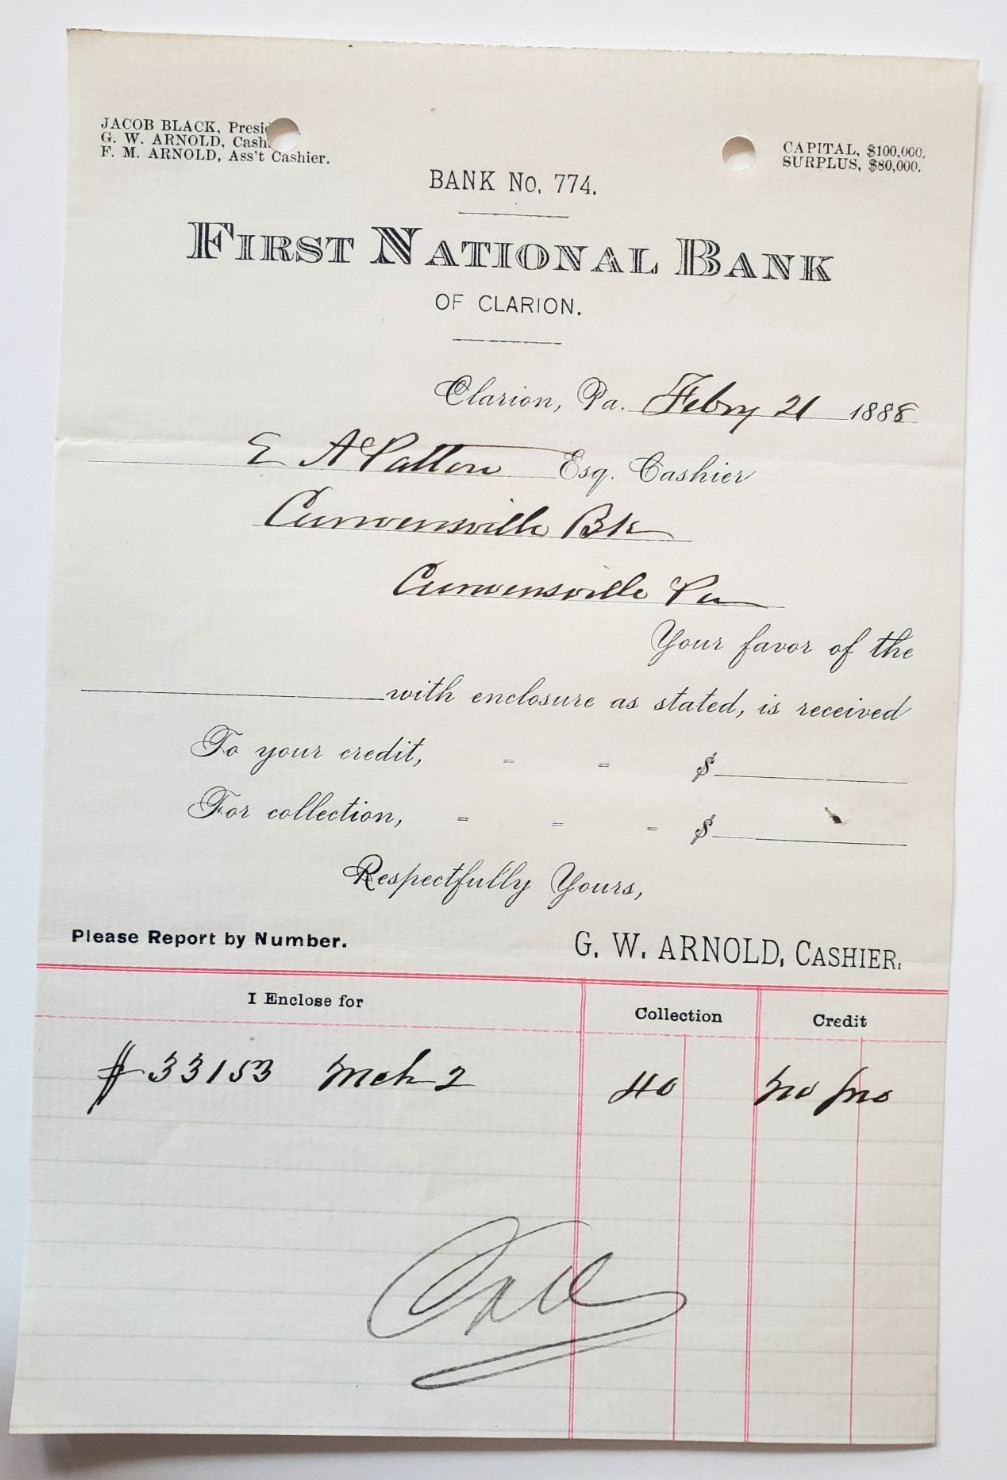 JACOB BLACK, Presi
G. W. ARNOLD, Cash.
F. M. ARNOLD, Ass't Cashier.
CAPITAL, $100,000.
SURPLUS, $80,000.
BANK No. 774.
FIRST NATIONAL BANK
OF CLARION.
Clarion, Pa. Febry 21 1888
E A Patton Esq. Cashier
Curwensville Bk
Curwensville Pa
Your favor of the
with enclosure as stated, is received
To your credit, - - $
For collection, - - - $
Respectfully Yours,
Please Report by Number.
G. W. ARNOLD, CASHIER.
I Enclose for Collection Credit
# 33153 Mch 2 40 no pro